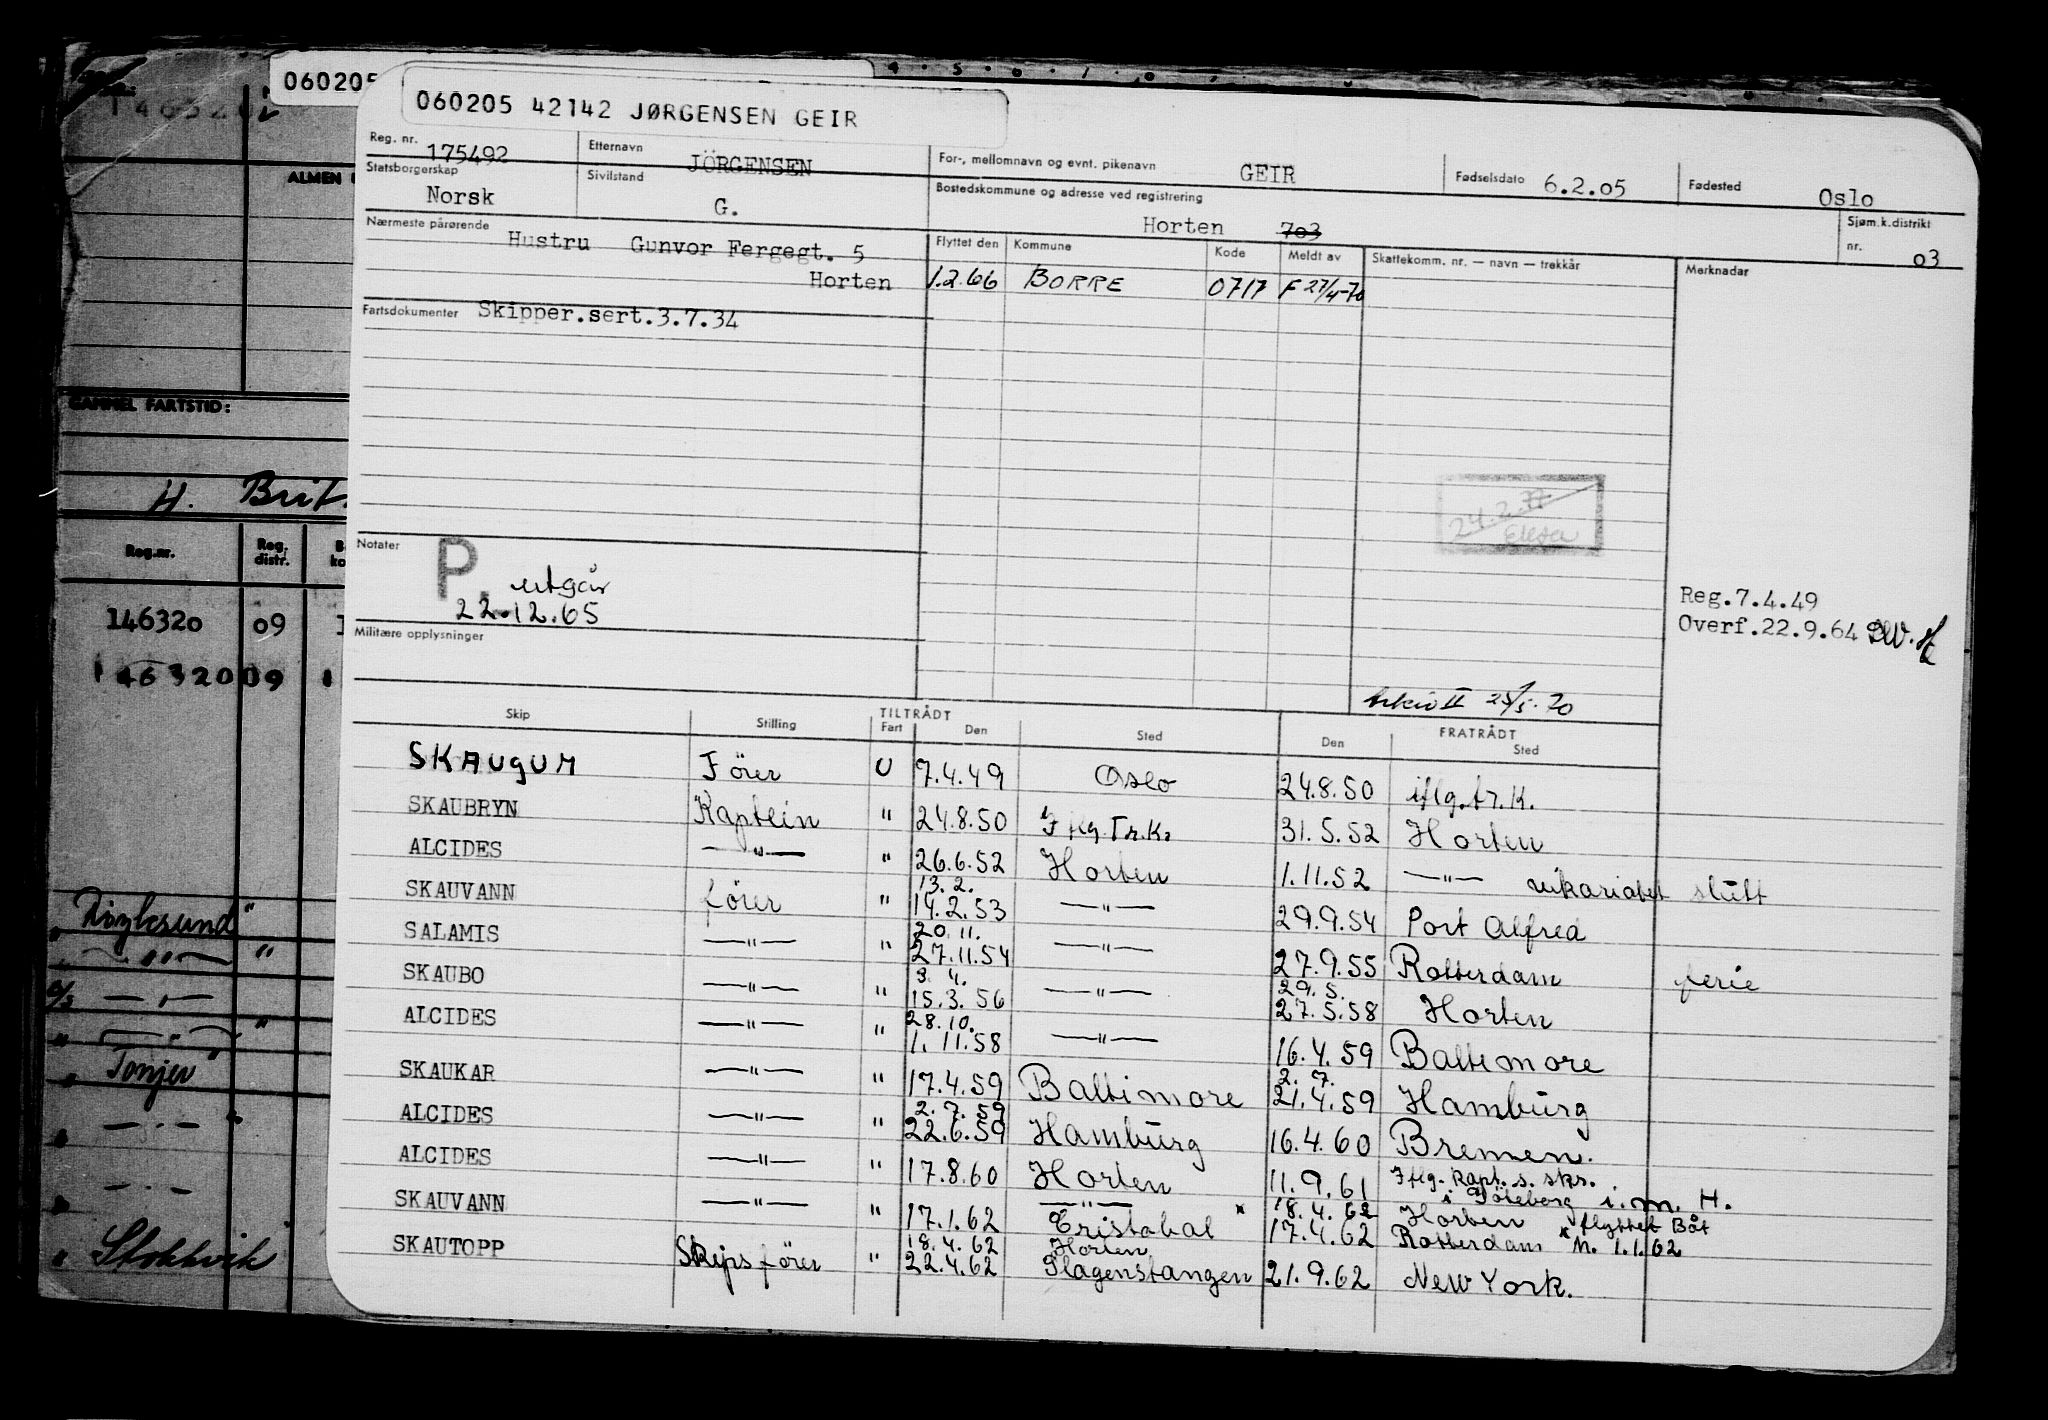 060205
060205 42142 JØRGENSEN GEIR
Reg. nr. 175492 Etternavn JÖRGENSEN For-, mellomnavn og evnt. pikenavn GEIR Fødselsdato 6.2.05 Fødested Oslo
Statsborgerskap Norsk Sivilstand G. Bostedskommune og adresse ved registrering Horten 703 Sjøm.k.distrikt nr. 03
Nærmeste pårørende Hustru Gunvor Fergegt. 5
Horten
Flyttet den Kommune Kode Meldt av Skattekomm. nr. — navn — trekkår Merknader
1.2.66 BORRE 0717 F 27/4-70
Fartsdokumenter Skipper.sert.3.7.34
24.2.77
Notater P. utgår
22.12.65
Militære opplysninger
Reg.7.4.49
Overf.22.9.64
Arkiv II 25/5.70
Skip Stilling TILTRÅDT Fart Den Sted FRATRÅDT Den Sted
SKAUGUM Förer U 7.4.49 Oslo 24.8.50 iflg.tr.K.
SKAUBRYN Kaptein " 24.8.50 Iflg.Tr.K. 31.5.52 Horten
ALCIDES —"— " 26.6.52 Horten 1.11.52 —"— vikariatet slutt
13.2.
SKAUVANN förer " 14.2.53 —"— 29.9.54 Port Alfred
20.11.
SALAMIS —"— " 27.11.54 —"— 27.9.55 Rotterdam ferie
3.4. 29.5.
SKAUBO —"— " 15.3.56 —"— 27.5.58 Horten
28.10.
ALCIDES —"— " 1.11.58 —"— 16.4.59 Baltimore
2.7.
SKAUKAR —"— " 17.4.59 Baltimore 21.4.59 Hamburg
2.7.59
ALCIDES —"— " 22.6.59 Hamburg 16.4.60 Bremen.
ALCIDES —"— " 17.8.60 Horten 11.9.61 Iflg. Kapt. s. skr.
i Göteborg i.m.H.
—"— x 18.4.62 Horten flyttet Båt
SKAUVANN —"— " 17.1.62 Cristobal 17.4.62 Rotterdam x M. 1.1.62
18.4.62 Horten
SKAUTOPP Skipsförer " 22.4.62 Slagenstangen 21.9.62 New York.
146320
ALMEN
GAMMEL FARTSTID:
H. Brit.
Reg.nr. Reg. distr.
146320 09
146320 09
"
"
Tonjer
Stokkvik